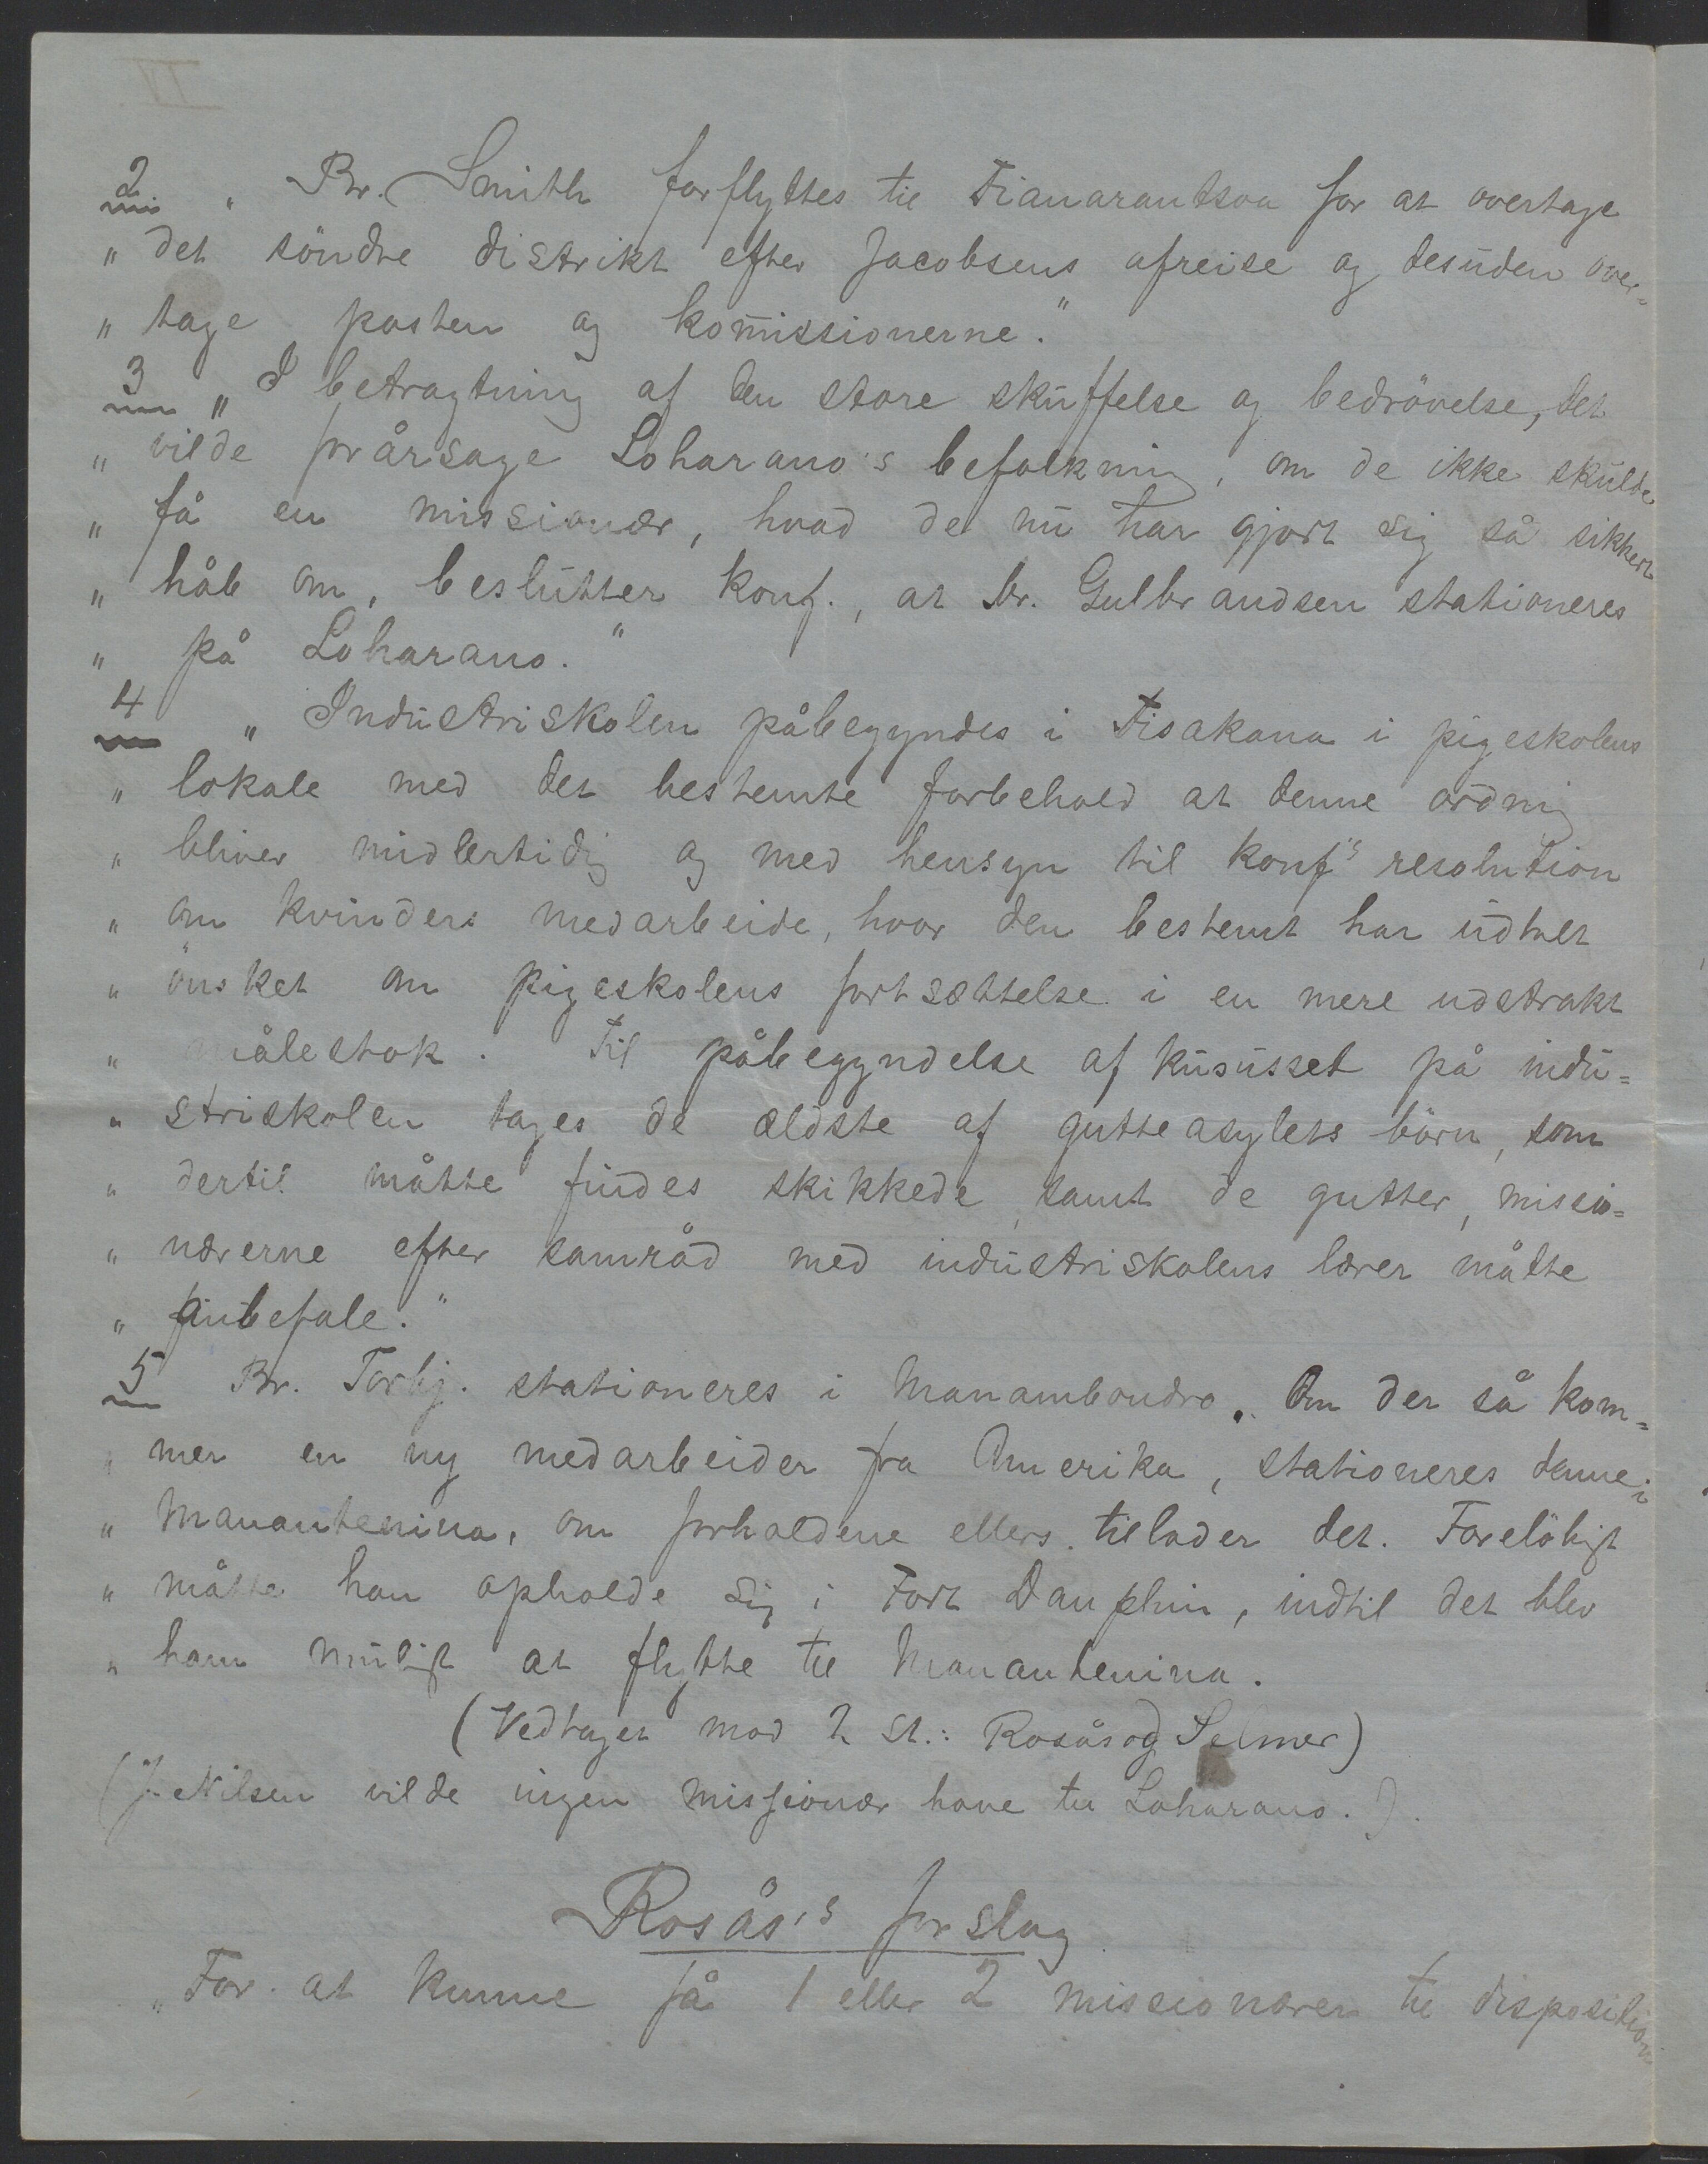 2 „ Br. Smith forflyttes til Fianarantsoa for at overtage
„ det söndre distrikt efter Jacobsens afreise og desuden over=
„ tage posten og kommissionerne."
3 „ I betragtning af den store skuffelse og bedrövelse, det
„ vilde forårsage Loharano's befolkning, om de ikke skulde
„ få en missionær, hvad de nu har gjort sig så sikkert
„ håb om, beslutter konf., at br. Gulbrandsen stationeres
„ på Loharano."
4 „ Industriskolen påbegyndes i Fisakana i pigeskolens
„ lokale med det bestemte forbehold at denne ordning
„ bliver midlertidig og med hensyn til konf's resolution
„ om kvinders medarbeide, hvor den bestemt har udtalt
„ önsket om pigeskolens fortsættelse i en mere udstrakt
„ målestok. Til påbegyndelse af kursusset på indu=
„ striskolen tages de ældste af gutteasylets börn, som
„ dertil måtte findes skikkede samt de gutter, missio=
„ nærerne efter samråd med industriskolens lærer måtte
„ anbefale."
5 Br. Torbj. stationeres i Manambondro. Om der så kom=
„ mer en ny medarbeider fra Amerika, stationeres denne i
„ Manantenina, om forholdene ellers tillader det. Foreløbigt
„ måtte han opholde sig i Fort Dauphin, indtil det blev
„ ham muligt at flytte til Manantenina.
(Vedtaget mod 2 st.: Rosås og Selmer)
(J. Nilsen vilde ingen missionær have til Loharano.)
Rosås's forslag
„ For at kunne få 1 eller 2 missionærer til disposition